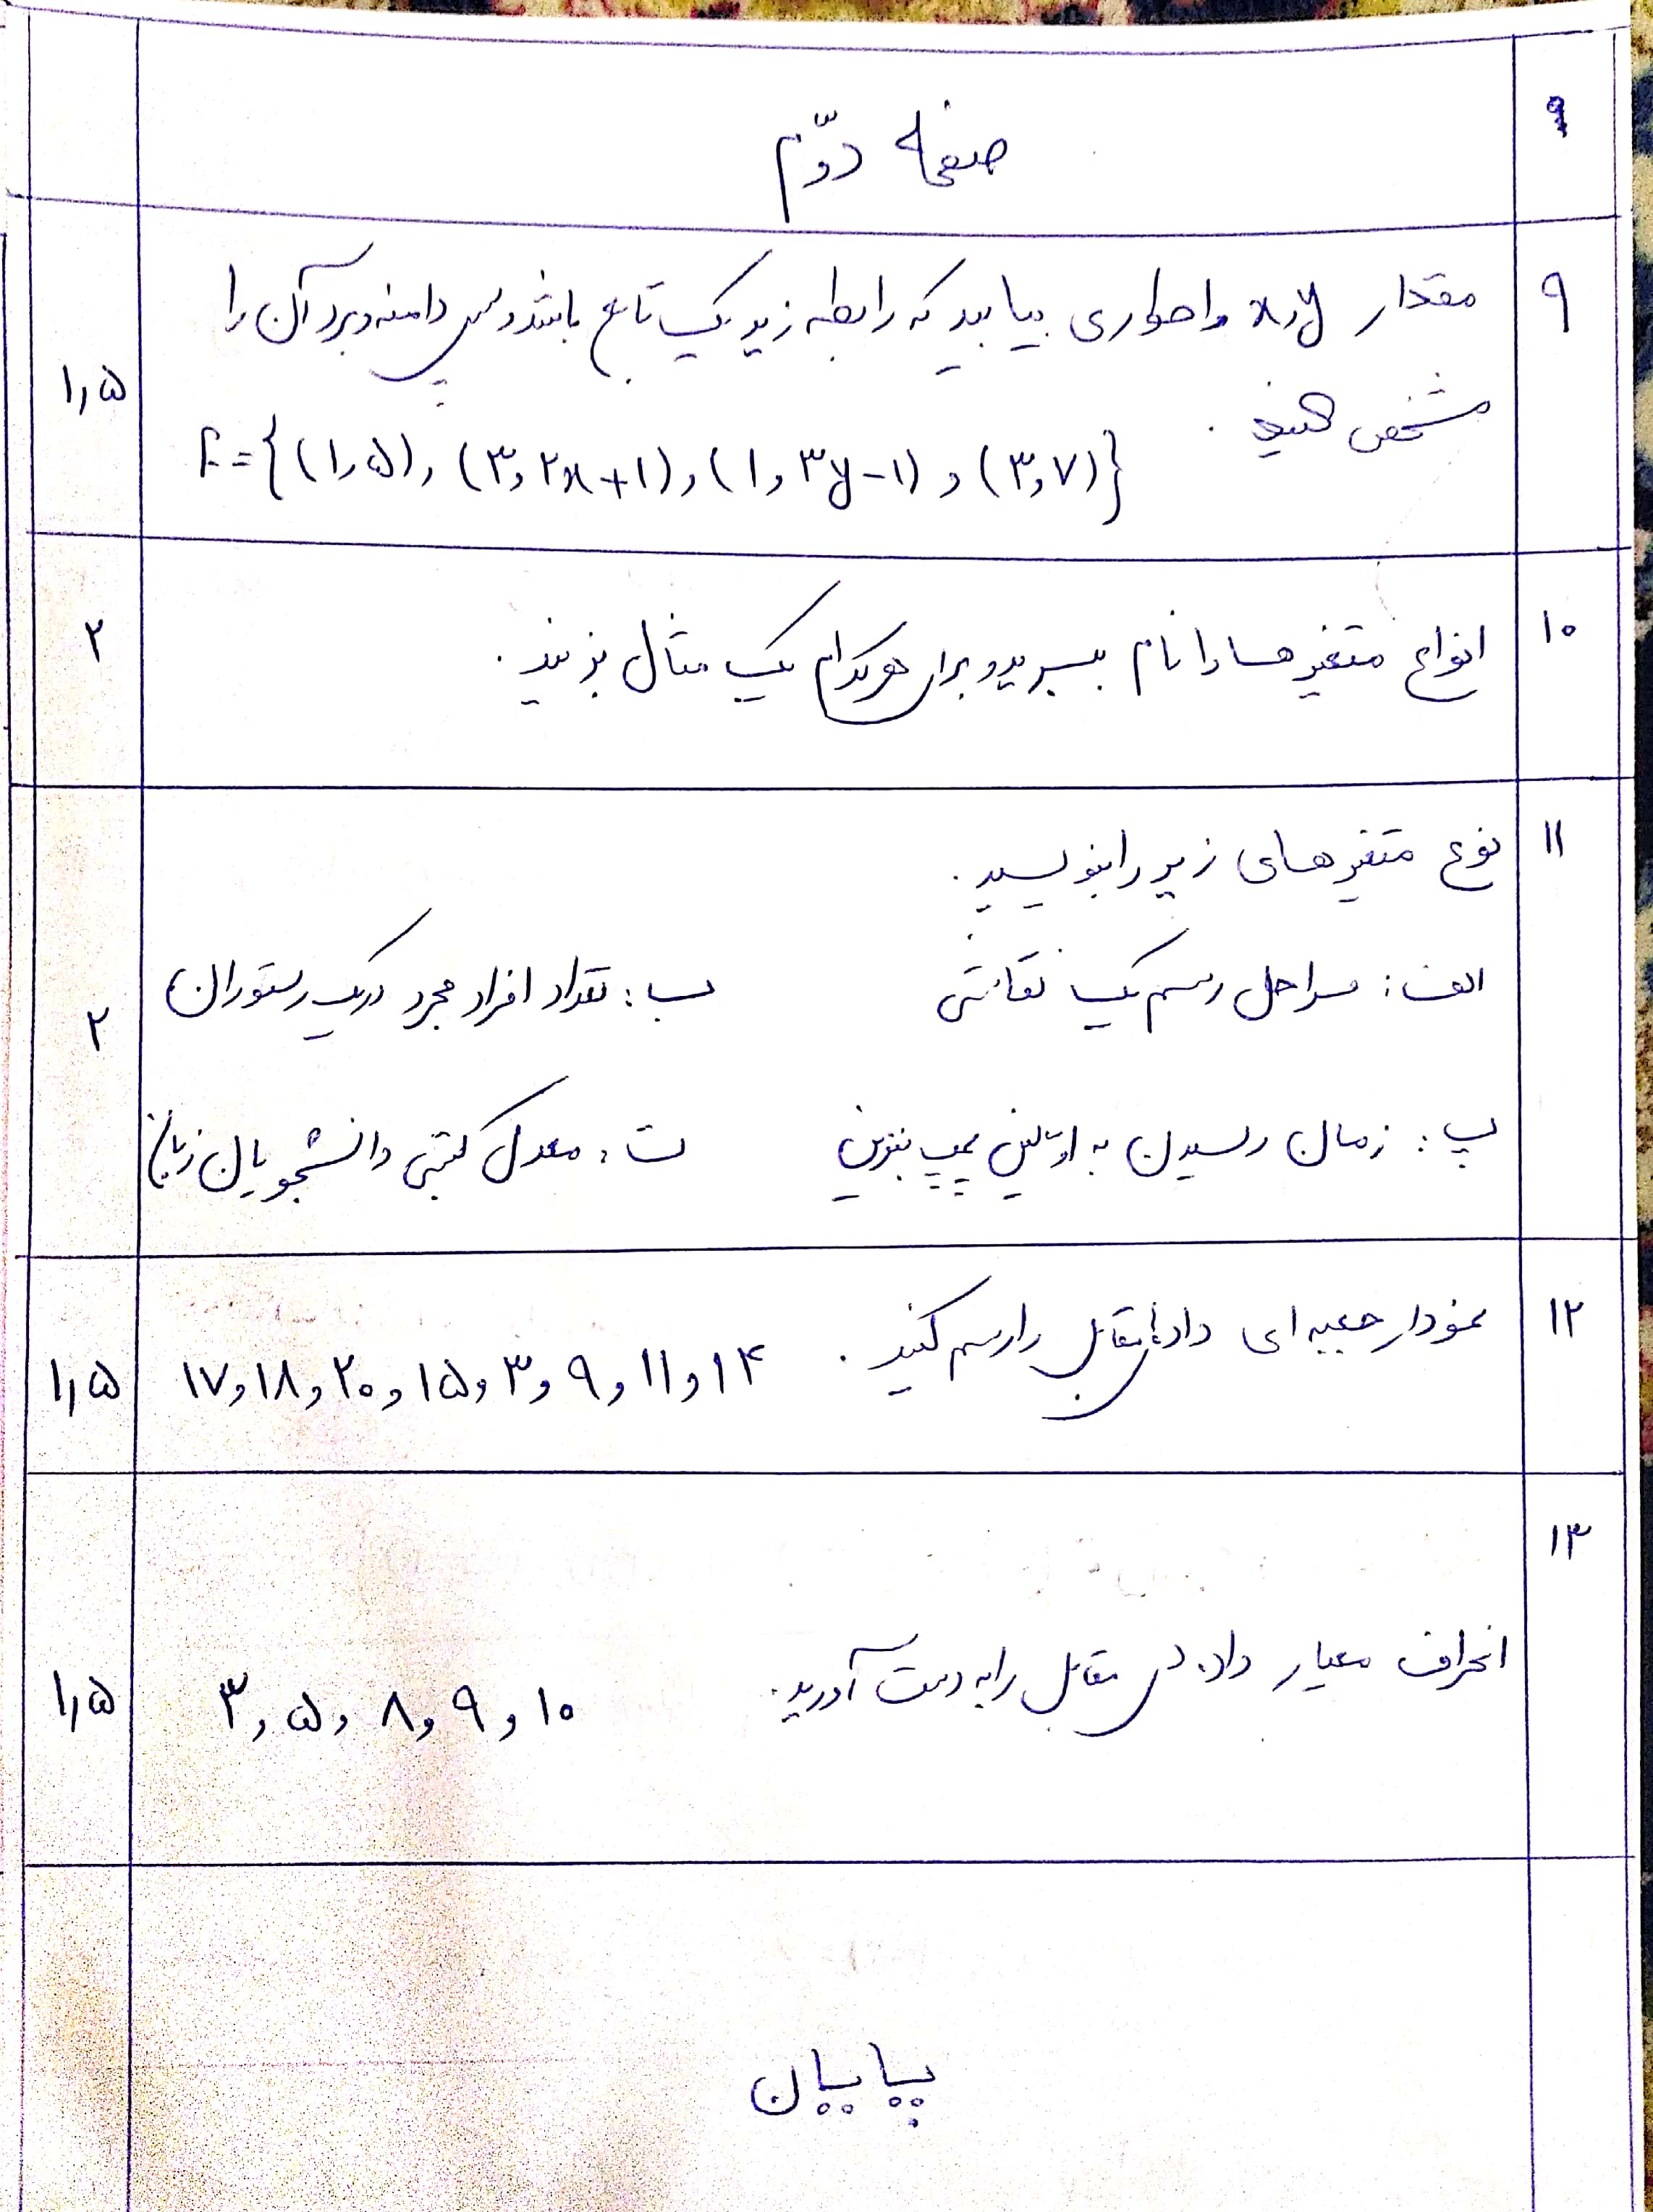 صفحه دوّم
۹ مقدار x,y را طوری بیابید که رابطه زیر یک تابع باشد و سپس دامنه و برد آن را
مشخص کنید. ۱٫۵
f = {(۱,۵), (۳, ۲x+۱), (۱, ۳y-۱), (۳,۷)}
۱۰ انواع متغیر ها را نام ببرید و برای هرکدام یک مثال بزنید. ۲
۱۱ نوع متغیرهای زیر را بنویسید.
الف: مراحل رسم یک نقاشی ب: تعداد افراد مجرد در یک رستوران ۲
پ: زمان رسیدن به اوّلین پمپ بنزین ت: معدل کتبی دانشجویان زبان
۱۲ نمودار جعبه ای داده های مقابل را رسم کنید. ۱۷, ۱۸, ۲۰, ۱۵, ۳, ۹, ۱۱, ۱۴ ۱٫۵
۱۳
انحراف معیار داده های مقابل را به دست آورید. ۳, ۵, ۸, ۹, ۱۰ ۱٫۵
پایان